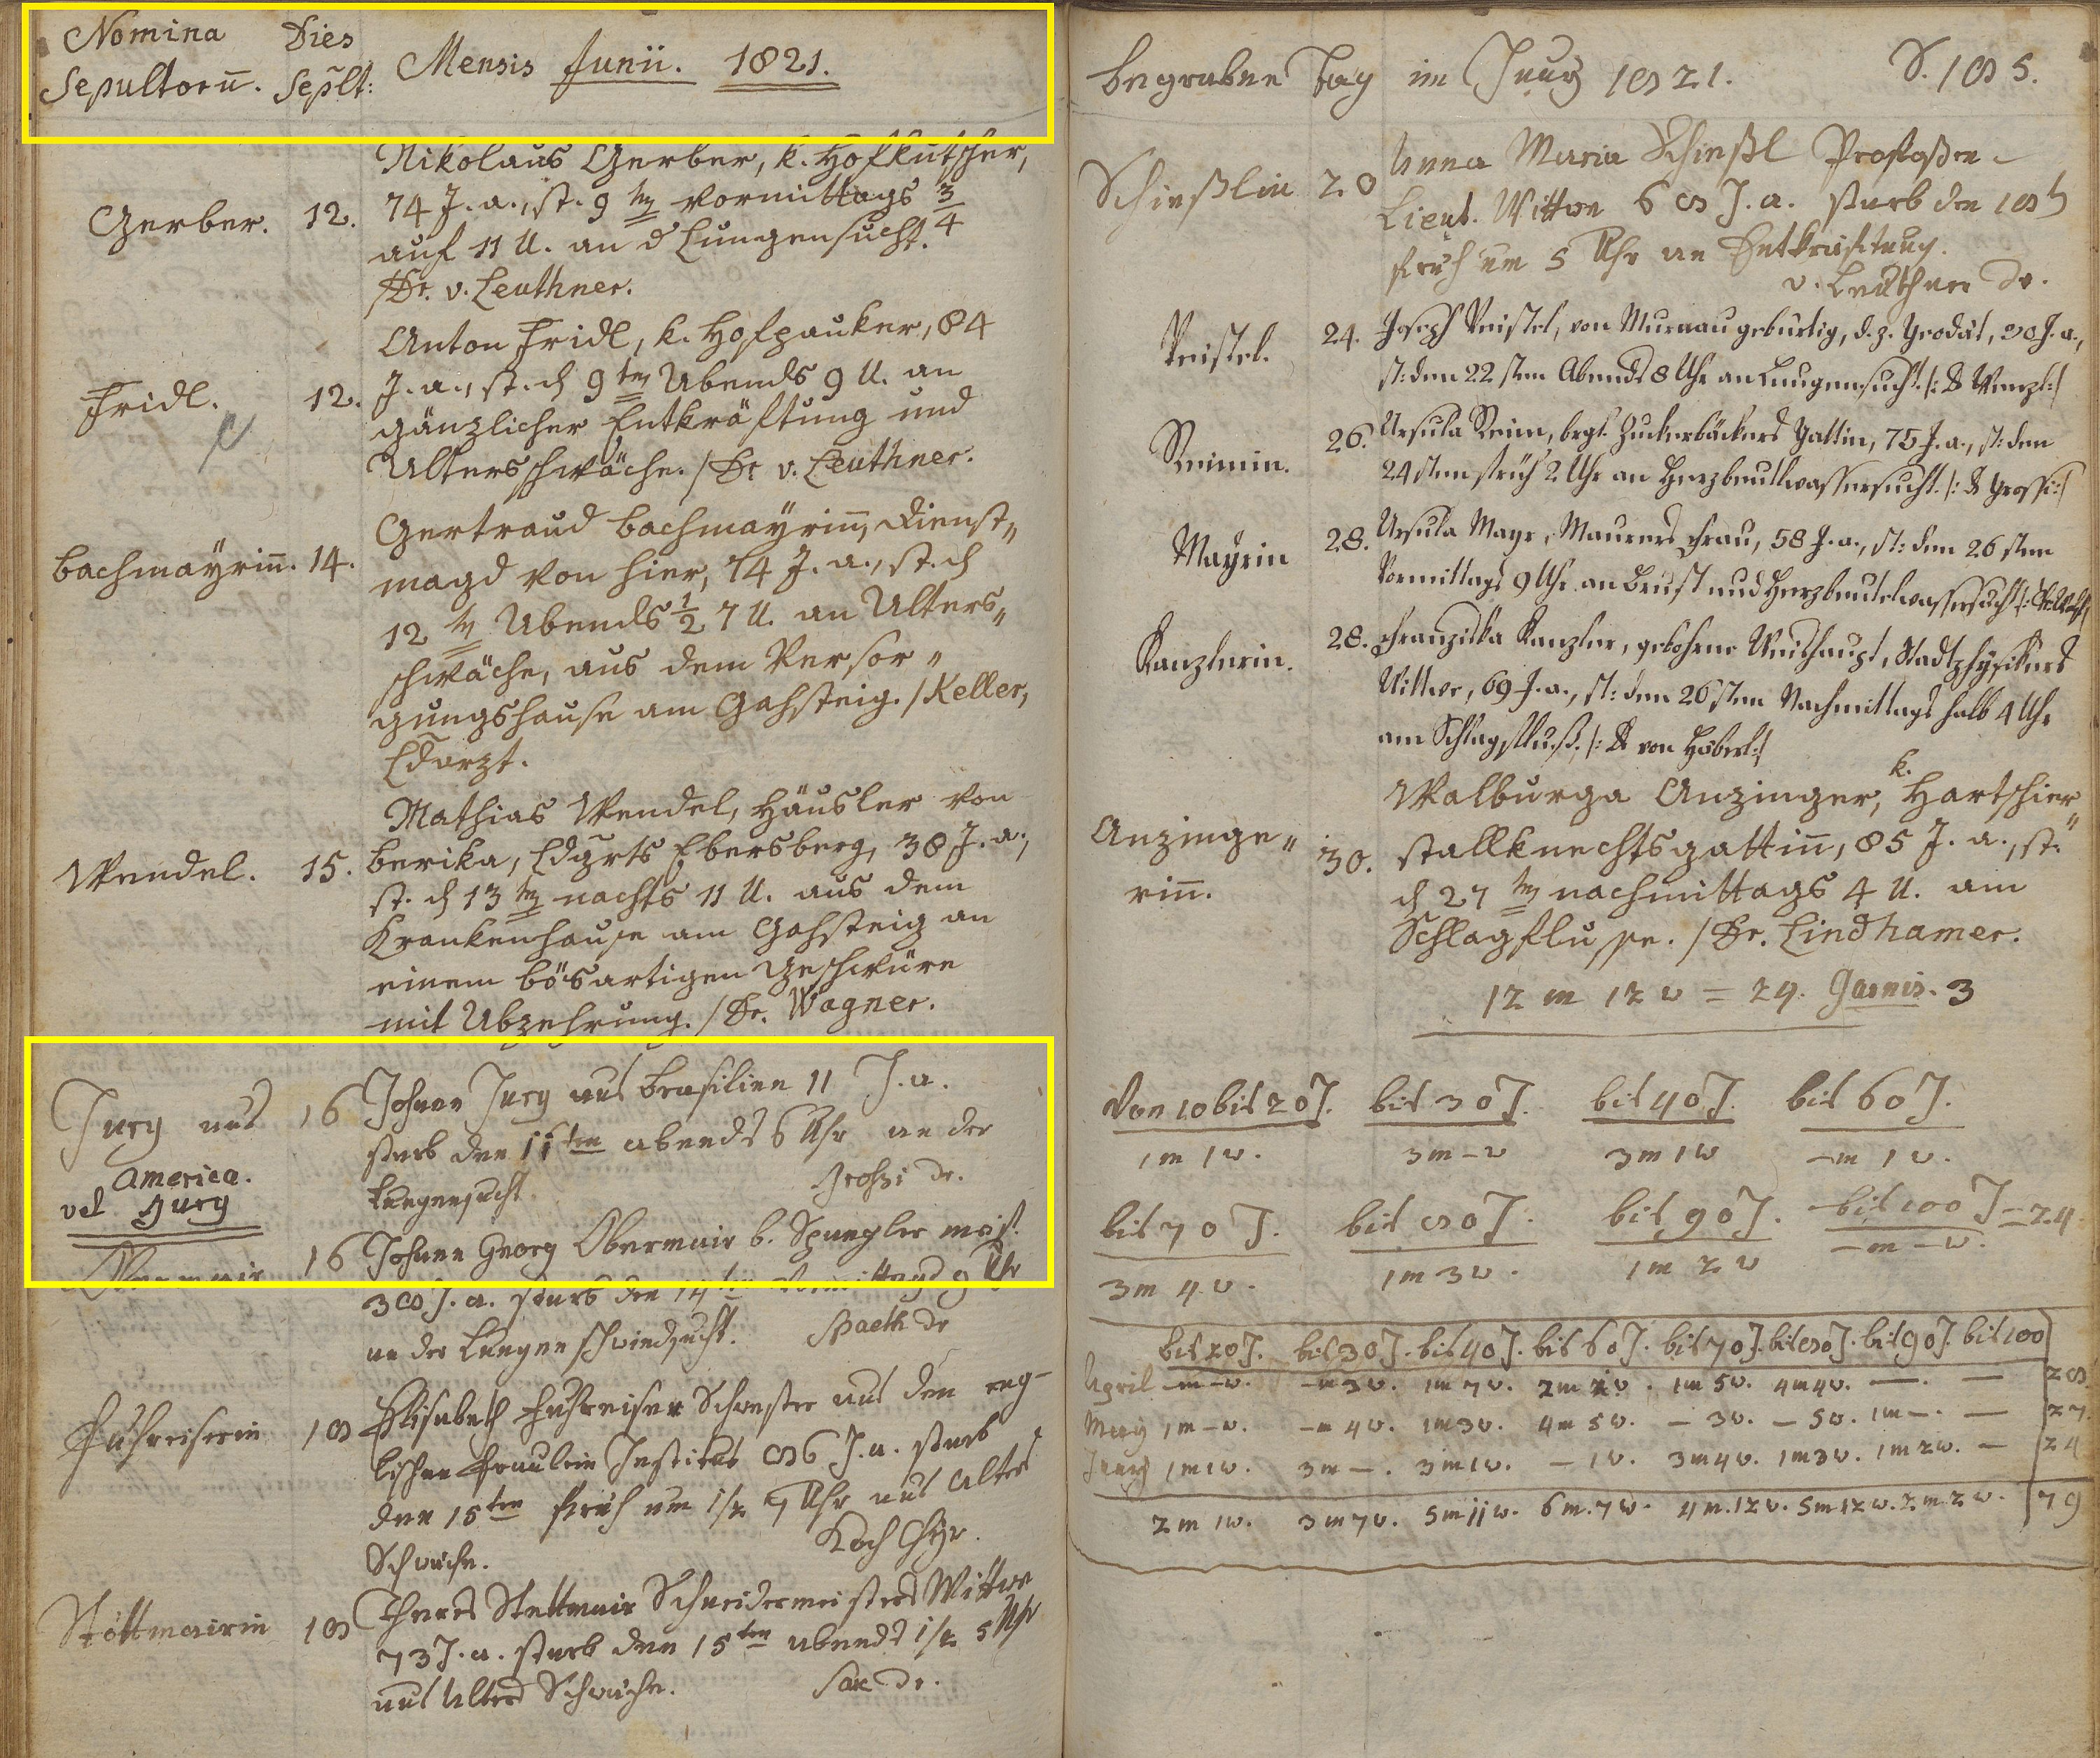 Nomina Dies
Sepultorū. Seplt: Mensis Junii. 1821.
Nikolaus Gerber, k. Hofkutscher,
Gerber. 12. 74 J. a., st. 9 vormittags 3/4
auf 11 U. an d Lungensucht.
/Dr. v. Leuthner.
Anton Fridl, k. Hofpauker, 84
Fridl. 12. J. a., st. d 9ten Abends 9 U. an
gänzlicher Entkräftung und
Altersschwäche. /Dr v. Leuthner.
Gertraud Bachmayrin̄, Dienst„
Bachmayrin̄. 14. magd von hier, 74 J. a., st. d
12 Abends 1/2 7 U. an Alters„
schwäche, aus dem Versor„
gungshause am Gahsteig. /Keller,
Ldarzt.
Mathias Wendel, Häusler von
Wendel. 15. Berika, Ldgrts Ebersberg, 38 J. a.,
st. d 13 nachts 11 U. aus dem
Krankenhause am Gahsteig an
einem bösartigen Geschwüre
mit Abzehrung. /Dr. Wagner.
Jury aus 16 Johann Jury aus Brasilien 11 J. a.
America. starb den 11ten abends 6 Uhr an der
vel Jury Lungensucht. Grossi Dr.
Obermair 16 Johann Georg Obermair b. Spengler meist.
38 J. a. starb den 14ten Vormittags 9 Uhr
an der Lungenschwindsucht. Spaeth Dr
18 Elisabeth Schwester aus den eng-
lischen Fraulein Institut 86 J. a. starb
den 15ten fruh um 1/2 7 Uhr aus Alters
Schwäche. Koch Chyr.
Stöttmairin 18 Theres Stettmair Schneidermeisters Wittwe
73 J. a. starb den 15ten abends 1/2 5 Uhr
aus Alters Schwäche. Dr.
begrabne Tag im Juny 1821. S. 185.
Schiesslin 20 Anna Maria Schiessl Profossen-
Lieut. Wittwe 68 J. a. starb den 18t
fruh um 5 Uhr an Entkräftung.
v. Leuthner Dr.
24. Joseph von Murnau gebürtig, d. z. 30 J. a.,
st: den 22sten Abends 8 Uhr an Lungensucht. /: D Wenzl :/
Reimin. 26. Ursula Reim, brgl. Zuckerbäckers Gattin, 75 J. a., st: den
24sten früh 2 Uhr an Herzbeutlwassersucht. /: D Grossi :/
Mayrin 28. Ursula Mayr, Maurers Frau, 58 J. a., st: den 26sten
Vormittags 9 Uhr an Brust und Herzbeutelwassersucht
Kanzlerin. 28. Franziska Kanzler, gebohrne Weishaupt, Stadtphysikers
Wittwe, 69 J. a., st: den 26sten Nachmittags halb 4 Uhr
am Schlagfluß. /: D von Häberl :/
Walburga Anzinger, k. Hartschier„
Anzinge„ 30. stallknechtsgattin̄, 85 J. a., st.
rin̄. d 27 nachmittags 4 U. am
Schlagflusse. /Dr. Lindhamer.
12 m 12 w = 24. Garnis. 3
Von 10 bis 20 J. bis 30 J. bis 40 J. bis 60 J.
1 m 1 w. 3 m - w 3 m 1 w - m 1 w.
bis 70 J. bis 80 J. bis 90 J. bis 100 J = 24
3 m 4 w. 1 m 3 w. 1 m 2 w - m - w.
bis 20 J. bis 30 J. bis 40 J. bis 60 J. bis 70 J. bis 80 J. bis 90 J. bis 100
April - m - w. - m 3 w. 1 m 7 w. 2 m 1 w. 1 m 5 w. 4 m 4 w. — — 28
May 1 m - w. - m 4 w. 1 m 3 w. 4 m 5 w. - 3 w. - 5 w. 1 m -. — 27
Juny 1 m 1 w. 3 m -. 3 m 1 w. - 1 w. 3 m 4 w. 1 m 3 w. 1 m 2 w. — 24
2 m 1 w. 3 m 7 w. 5 m 11 w. 6 m. 7 w. 4 m. 12 w. 5 m 12 w. 2 m. 2 w. 79